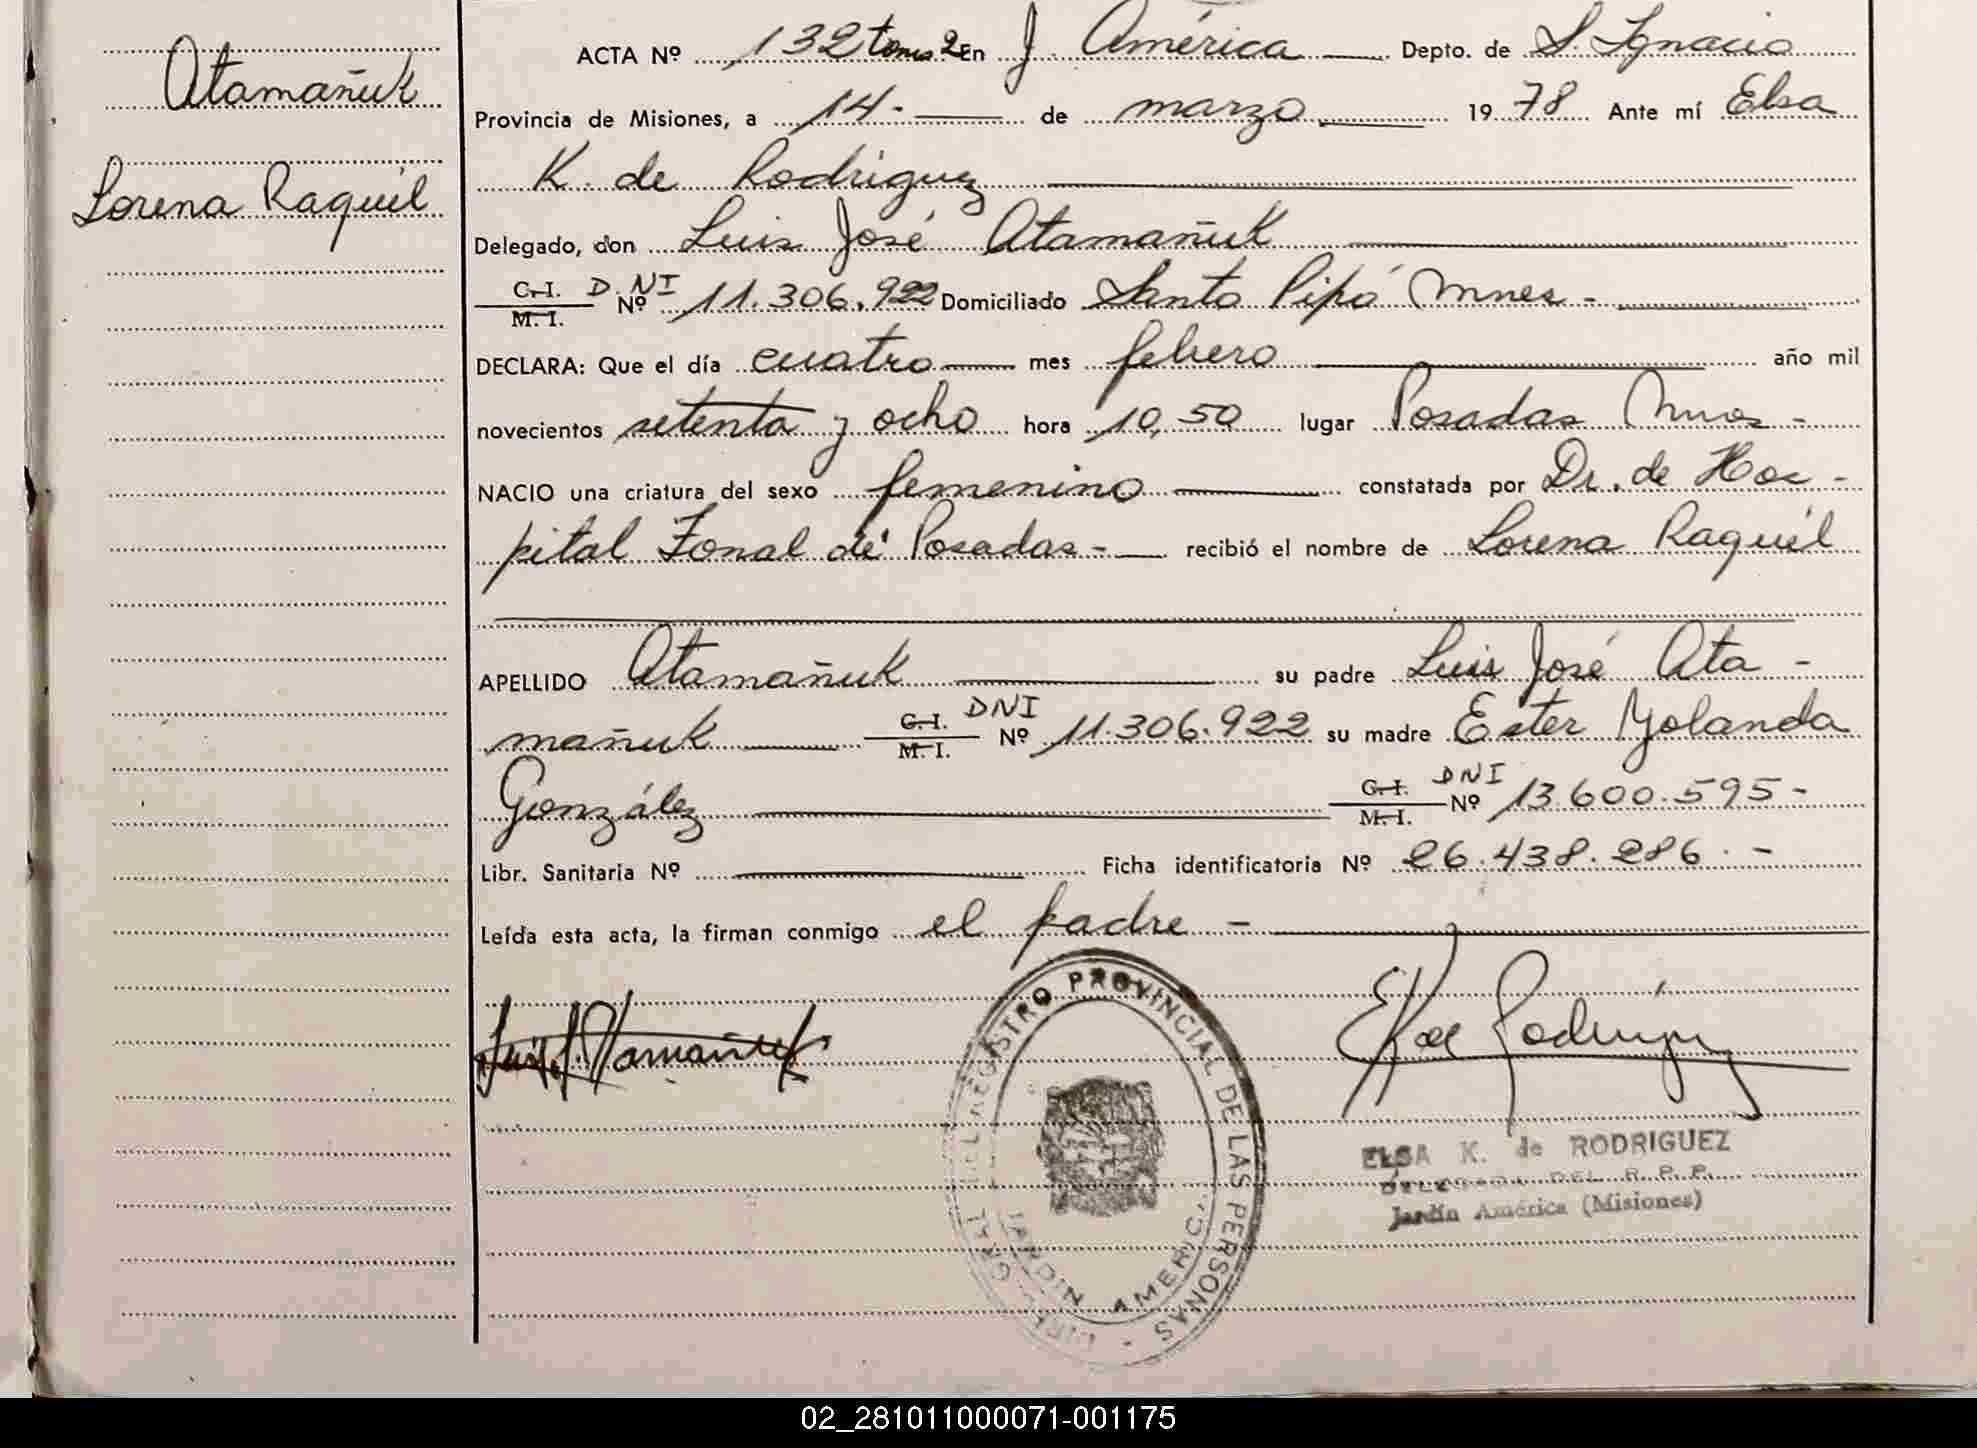 Atamañuk
Lorena Raquel
ACTA Nº 132 tomo 2 En J. América Depto. de S. Ignacio
Provincia de Misiones, a 14- de marzo 1978 Ante mí Elsa
K. de Rodriguez
Delegado, don Luis José Atamañuk
C.I. M.I. DNI Nº 11.306.922 Domiciliado Santo Pipó Mnes -
DECLARA: Que el día cuatro mes febrero año mil
novecientos setenta y ocho hora 10,50 lugar Posadas Mnes -
NACIO una criatura del sexo femenino constatada por Dr. de Hos-
pital Zonal de Posadas - recibió el nombre de Lorena Raquel
APELLIDO Atamañuk su padre Luis José Ata-
mañuk C.I. M.I. DNI Nº 11.306.922 su madre Ester Yolanda
González C.I. M.I. DNI Nº 13.600.595-
Libr. Sanitaria Nº Ficha identificatoria Nº 26.438.286. -
Leída esta acta, la firman conmigo el padre -
Luis J. Atamañuk
EK de Rodriguez
REGISTRO PROVINCIAL DE LAS PERSONAS
JARDIN AMERICA
ELSA K. de RODRIGUEZ
DELEGADA DEL R. P. P.
Jardín América (Misiones)
02_281011000071-001175